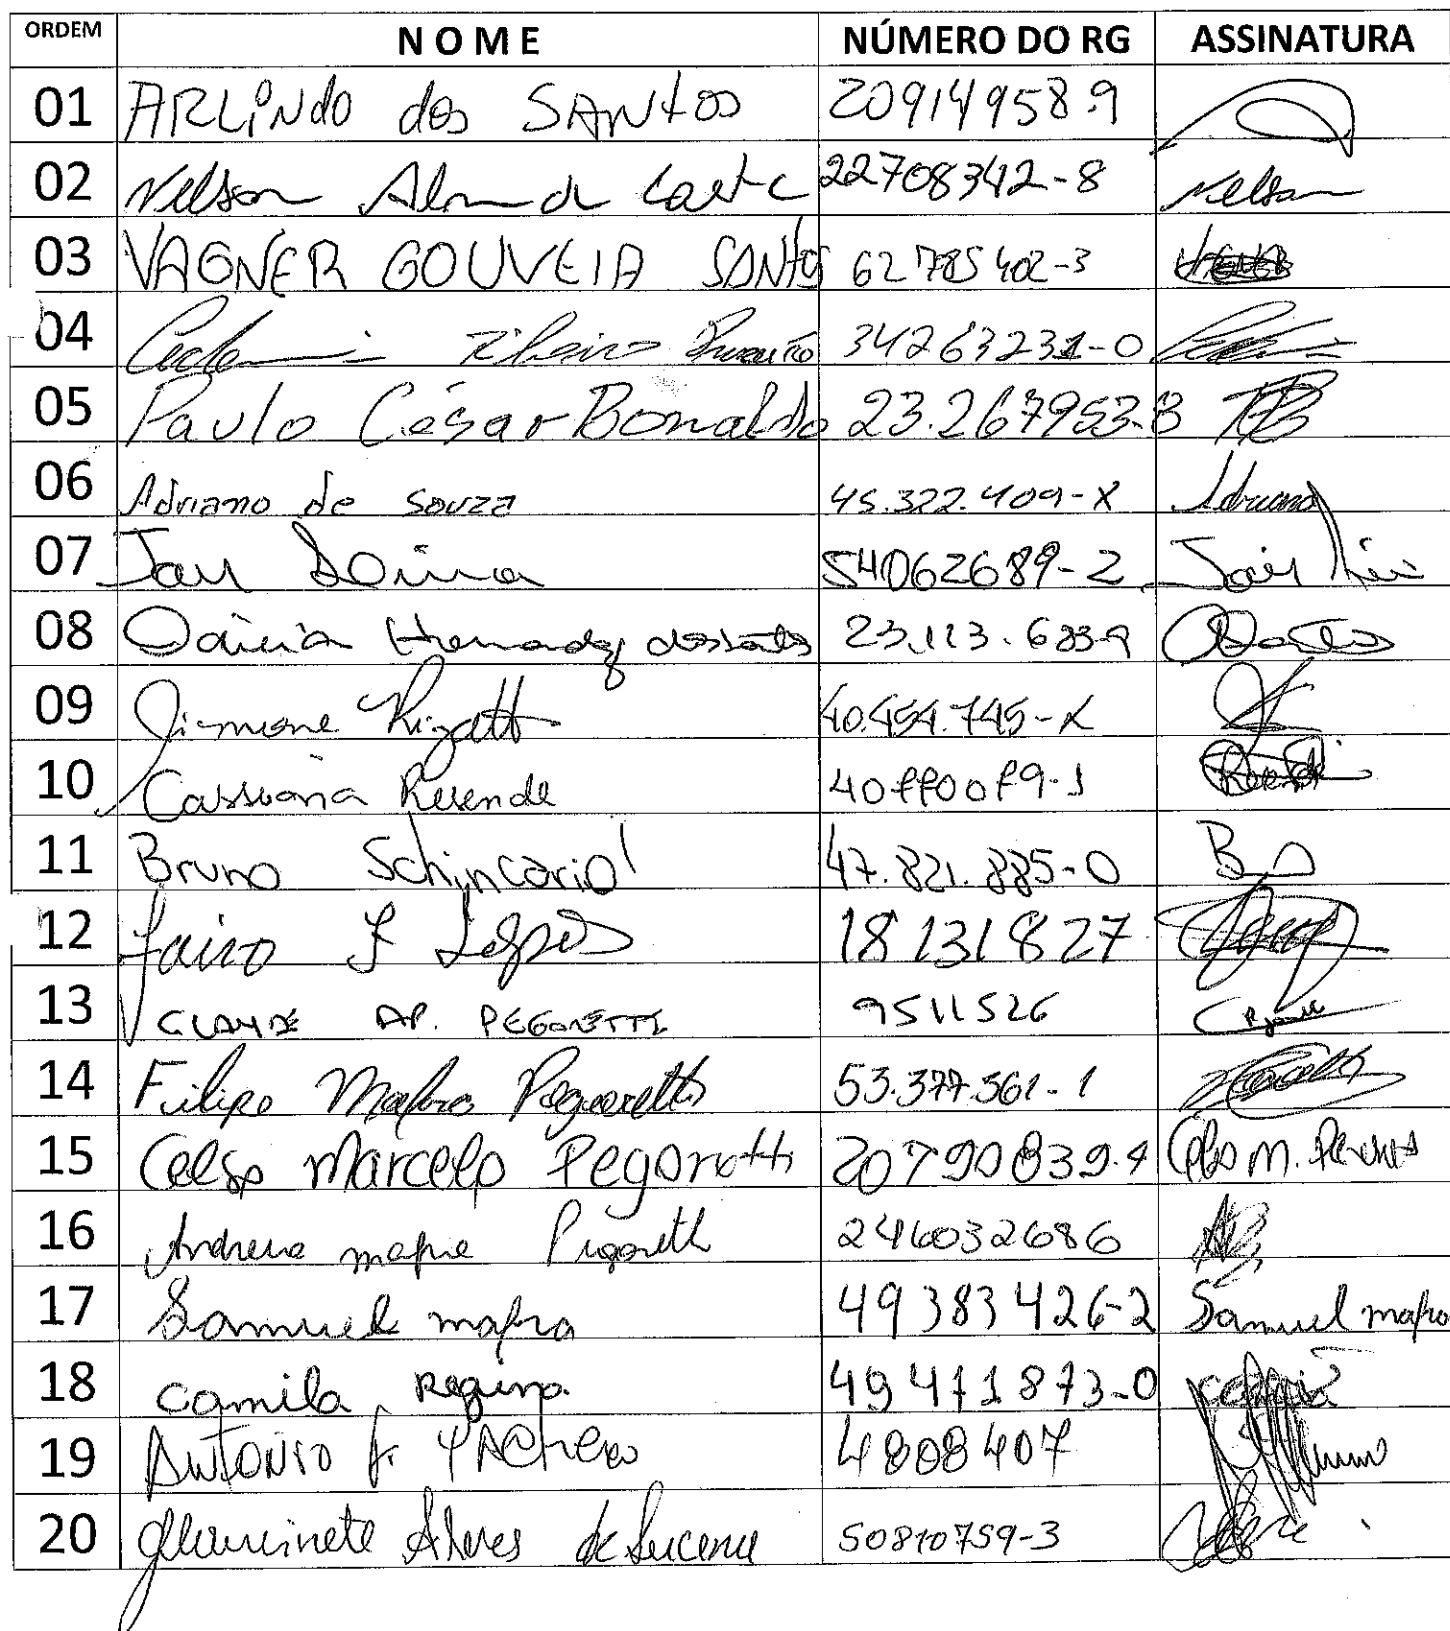 ORDEM NOME NÚMERO DO RG ASSINATURA
01 ARLINDO dos SANTOS 20914958-9
02 Nelson 22708342-8 Nelson
03 VAGNER GOUVEIA SANTOS 62785402-3
04 Ribeiro 34263231-0
05 Paulo César Bonaldo 23.267953-8
06 Adriano de Souza 45.322.409-X Adriano
07 Jair 54062689-2 Jair
08 dos Santos 23.113.683-9
09 Rizatto 40.454.745-X
10 Cassiana Resende
11 Bruno Schincariol 47.821.885-0 B
12 Jairo F Lopes 18131827
13 AP. PEGORETTI 9511526
14 Filipe Mafra Pegoretti 53.377.361-1
15 Celso Marcelo Pegoretti 20790839-4 Celso M.
16 Pegoretti 246032686
17 Samuel mafra 49383426-2 Samuel mafra
18 Camila Regina 49471873-0
19 ANTONIO PACheco 4808407
20 Alves de Lucena 50810759-3